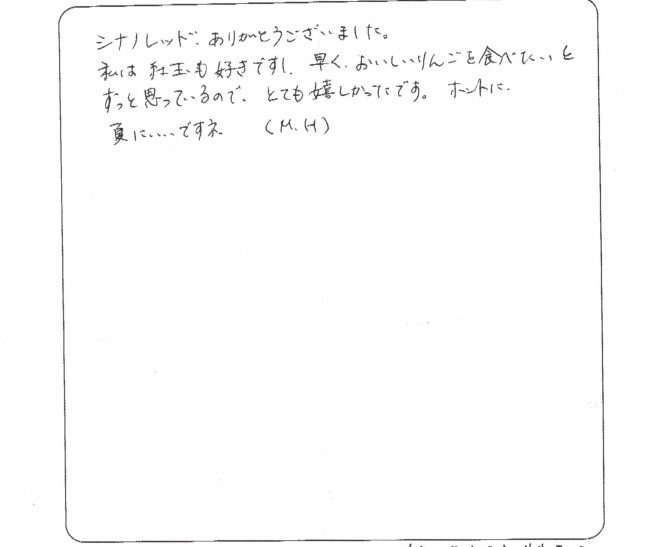 シナノレッド、ありがとうございました。
私は紅玉も好きですし、早く、おいしいりんごを食べたいと
ずっと思っているので、とても嬉しかったです。ホントに、
夏にいい、ですネ。 (M.H)